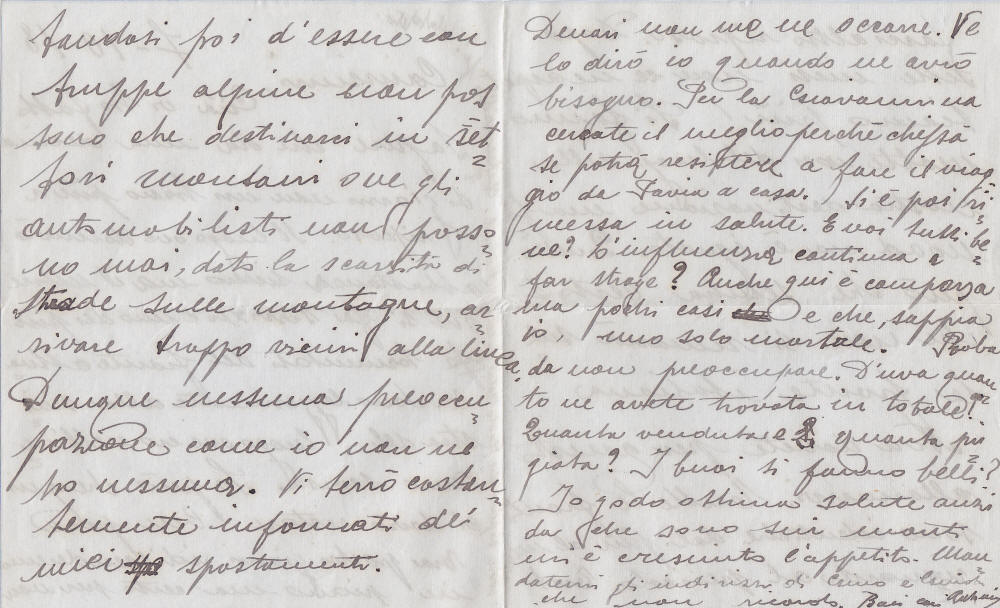 tandosi poi d'essere con
truppe alpine non pos
sono che destinarci in set=
tori montani ove gli
automobilisti non posso=
no mai, data la scarsità di
strade sulle montagne, ar=
rivare troppo vicini alla linea.
Dunque nessuna preoccu=
pazione come io non ne
ho nessuna. Vi terrò costan=
temente informati dei
miei spostamenti.
Denari non me ne occorre. Ve
lo dirò io quando ne avrò
bisogno. Per la Giovannina
cercate il meglio perchè chissà
se potrà resistere a fare il viag=
gio da Pavia a casa. Si è poi ri=
messa in salute. E voi tutti be=
ne? L'influenza continua a
far strage? Anche qui è comparsa
ma pochi casi e che, sappia
io, uno solo mortale. Roba
da non preoccupare. D'uva quan=
to ne avete trovata in totale?
Quanta venduta e quanta pi=
giata? I buoi si fanno belli?
Io godo ottima salute anzi
da che sono sui monti
mi è cresciuto l'appetito. Man=
datemi gli indirizzi di e
che non ricordo. Baci